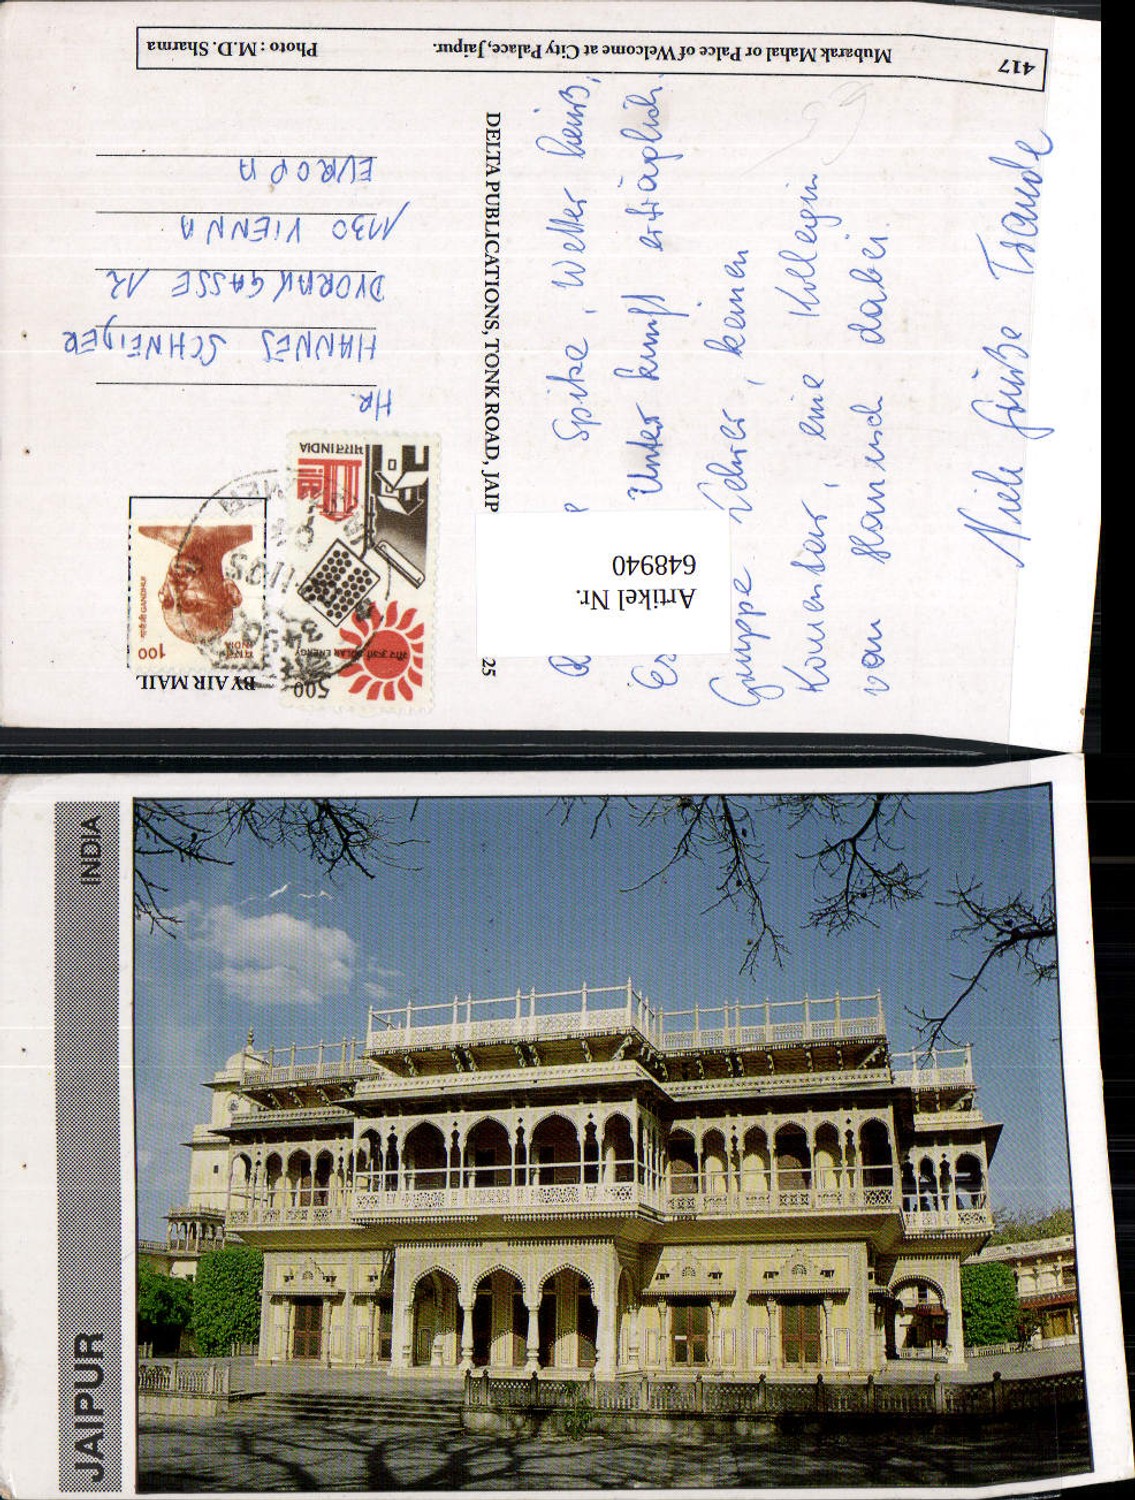 417 Mubarak Mahal or Palce of Welcome at City Palace, Jaipur. Photo : M.D. Sharma
Spitze, Wetter heiß,
Unterkunft erträglich.
Gruppe Lehrer, keinen
Komentar, eine Kollegin
von Hanusch dabei.
Viele Grüße Traude
DELTA PUBLICATIONS, TONK ROAD, JAIP
25
Artikel Nr.
648940
BY AIR MAIL
100
भारत
INDIA
GANDHI
500
SOLAR ENERGY
भारत INDIA
HR.
HANNES SCHNEIDER
DVORAKGASSE 12
1130 VIENNA
EUROPA
JAIPUR INDIA